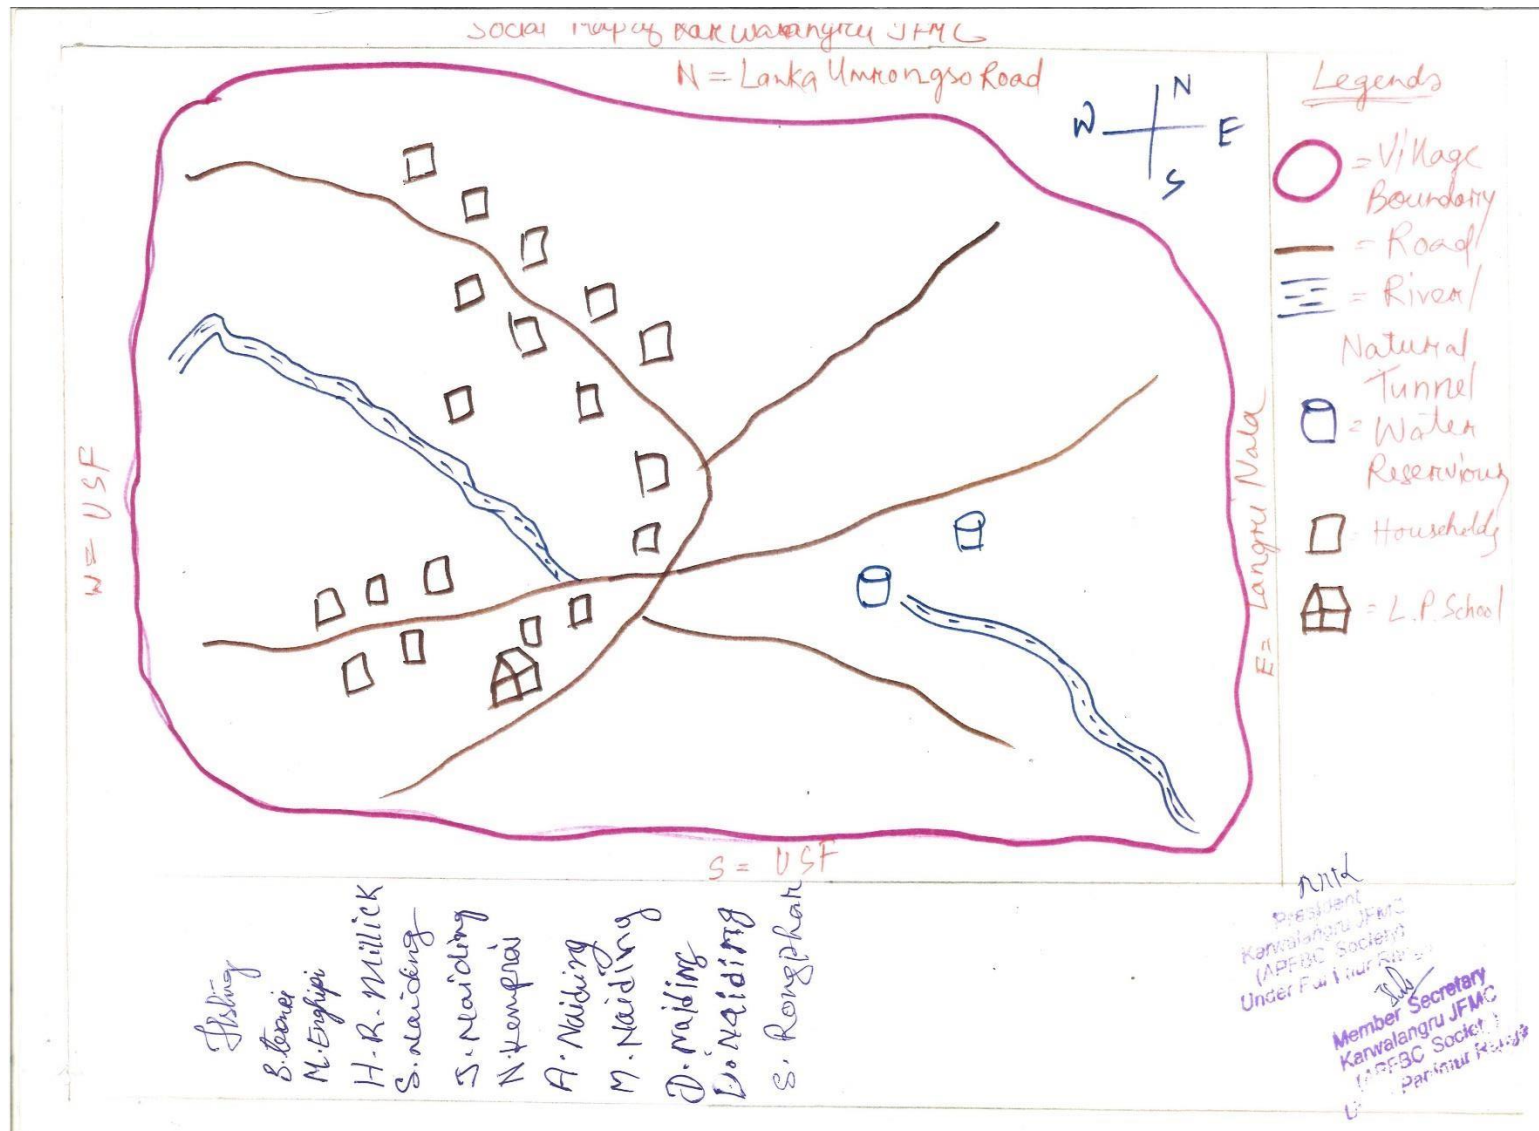 Social Map of Karwalangru JFMC
N = Lanka Umrongso Road
N
W E
S
Legends
= Village
Boundary
= Road
= River/
Natural
Tunnel
= Water
Reserviours
Households
= L.P. School
W = USF
E = Langri Nala
S = USF
M. Enghipi
H. R. Millick
S. Naiding
J. Naiding
N. Kemprai
A. Naiding
M. Naiding
D. Naiding
D. Naiding
S. Rongphar
President
Karwalangru JFMC
(APFBC Society)
Under
Member Secretary
Karwalangru JFMC
(APFBC Society)
Range